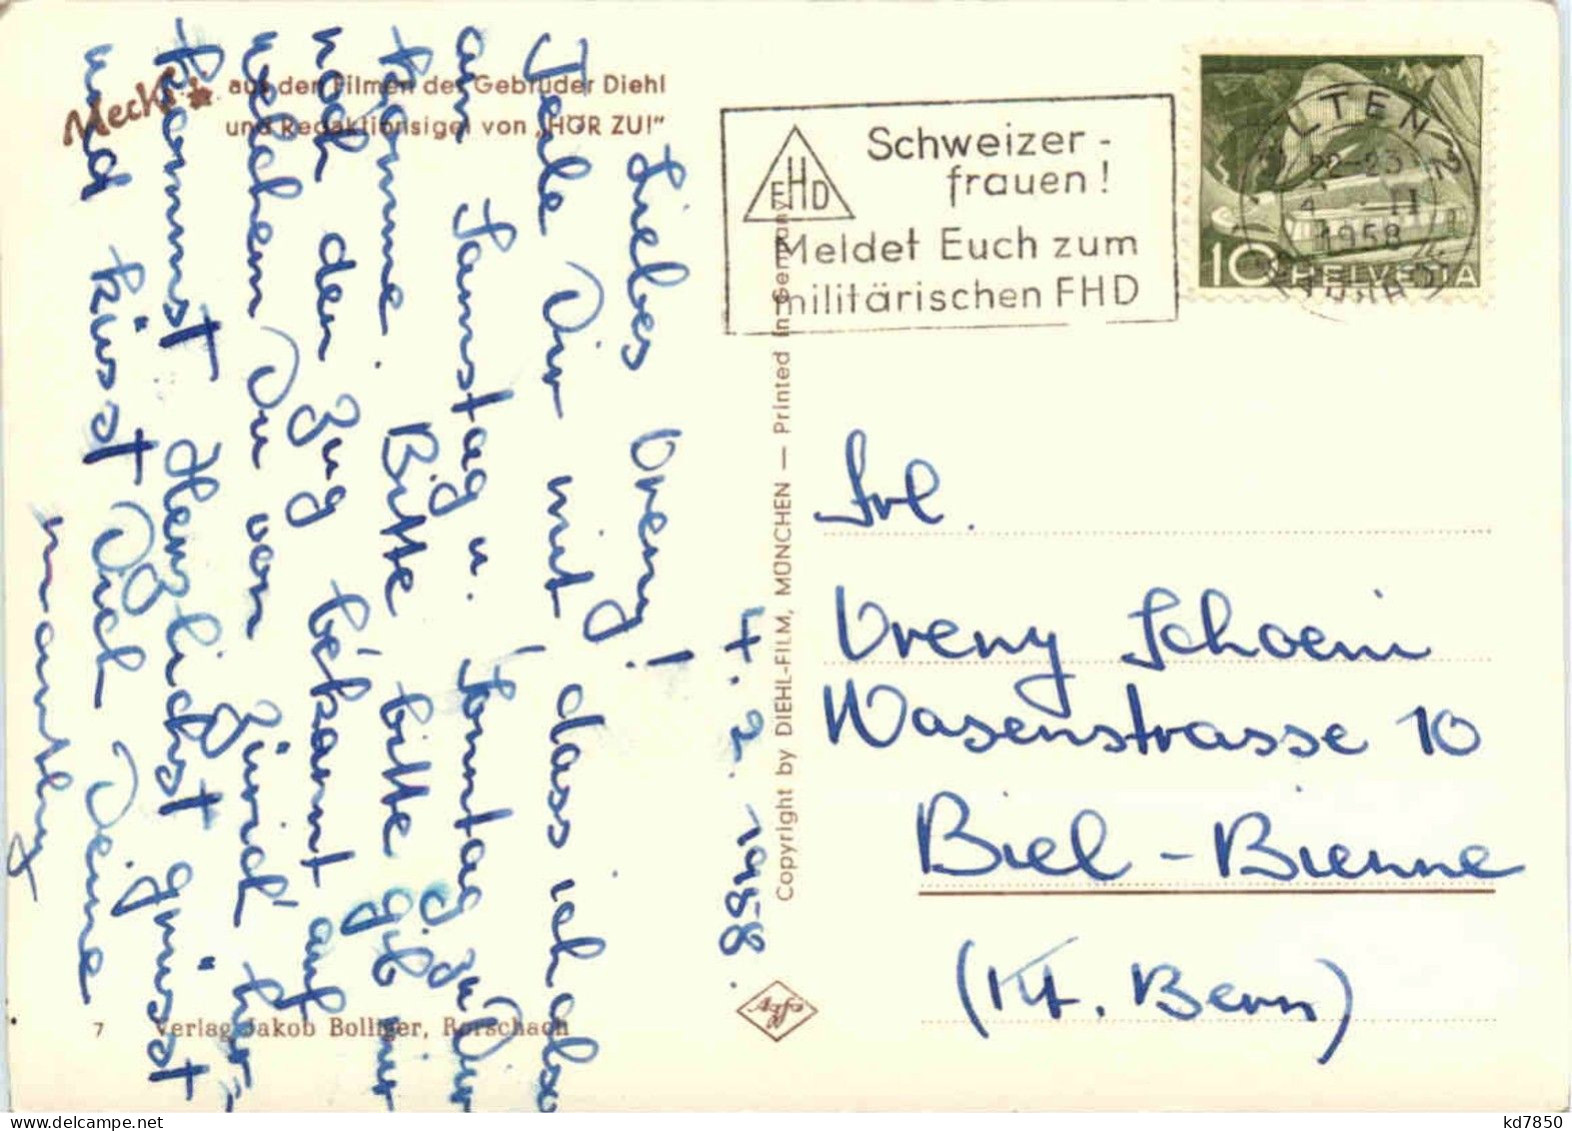 Mecki
aus den Filmen der Gebrüder Diehl
und Redaktionsigel von „HÖR ZU!"
Schweizer-
frauen!
Meldet Euch zum
militärischen FHD
FHD
OLTEN 2
22-23
4. II
1958
10 HELVETIA
4.2.1958.
Liebes Vreny!
Teile Dir mit, dass ich also
am Samstag u. Sonntag zu Dir
komme. Bitte bitte gib mir
noch den Zug bekannt auf
welchem Du von Zürich her
kommst. Herzlichst grüsst
und küsst Dich Deine
Frl.
Vreny Schoeni
Wasenstrasse 10
Biel-Bienne
(Kt. Bern)
Copyright by DIEHL-FILM, MÜNCHEN — Printed in Germany
7 Verlag Jakob Bolliger, Rorschach
Agfa
kd7850